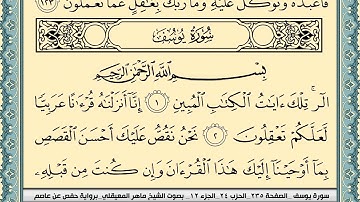 فَٱعۡبُدۡهُ وَتَوَكَّلۡ عَلَيۡهِۚ وَمَا رَبُّكَ بِغَٰفِلٍ عَمَّا تَعۡمَلُونَ ١٢٣
سُورَةُ يُوسُفَ
بِسۡمِ ٱللَّهِ ٱلرَّحۡمَٰنِ ٱلرَّحِيمِ
الٓرۚ تِلۡكَ ءَايَٰتُ ٱلۡكِتَٰبِ ٱلۡمُبِينِ ١ إِنَّآ أَنزَلۡنَٰهُ قُرۡءَٰنًا عَرَبِيّٗا
لَّعَلَّكُمۡ تَعۡقِلُونَ ٢ نَحۡنُ نَقُصُّ عَلَيۡكَ أَحۡسَنَ ٱلۡقَصَصِ
بِمَآ أَوۡحَيۡنَآ إِلَيۡكَ هَٰذَا ٱلۡقُرۡءَانَ وَإِن كُنتَ مِن قَبۡلِهِۦ
سورة يوسف _ الصفحة ٢٣٥_ الحزب ٢٤_ الجزء ١٢ _ بصوت الشيخ ماهر المعيقلي_ برواية حفص عن عاصم